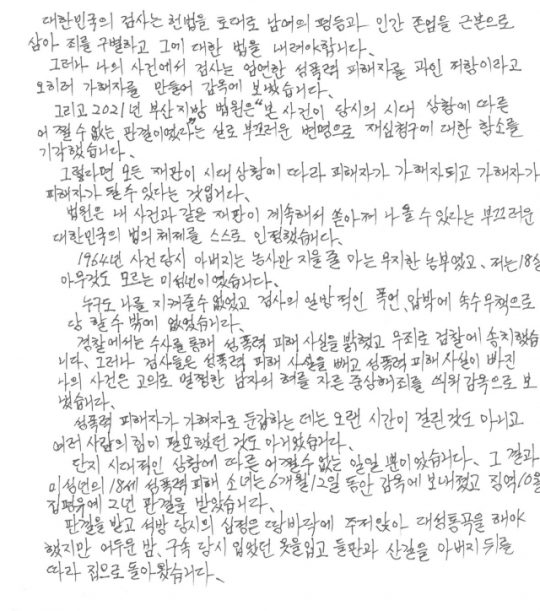 대한민국의 검사는 헌법을 토대로 남여의 평등과 인간 존엄을 근본으로
삼아 죄를 구별하고 그에 대한 벌을 내려야 합니다.
그러나 나의 사건에서 검사는 엄연한 성폭력 피해자를 과잉 저항이라고
오히려 가해자를 만들어 감옥에 보냈습니다.
그리고 2021년 부산지방 법원은 "본 사건이 당시의 시대 상황에 따른
어쩔 수 없는 판결이였다"는 실로 부끄러운 변명으로 재심청구에 대한 항소를
기각했습니다.
그렇다면 모든 재판이 시대 상황에 따라 피해자가 가해자되고 가해자가
피해자가 될 수 있다는 것입니다.
법원은 내 사건과 같은 재판이 계속해서 쏟아져 나올 수 있다는 부끄러운
대한민국의 법의 체제를 스스로 인정했습니다.
1964년 사건 당시 아버지는 농사만 지을 줄 아는 무지한 농부였고, 저는 18살
아무것도 모르는 미성년이였습니다.
누구도 나를 지켜줄 수 없었고 검사의 일방적인 폭언, 압박에 속수무책으로
당할 수 밖에 없었습니다.
경찰에서는 수사를 통해 성폭력 피해 사실을 밝혔고 무죄로 검찰에 송치했습니
다. 그러나 검사들은 성폭력 피해 사실을 빼고 성폭력 피해 사실이 빠진
나의 사건은 고의로 멀쩡한 남자의 혀를 자른 중상해죄를 씌워 감옥으로 보
냈습니다.
성폭력 피해자가 가해자로 둔갑하는 데는 오랜 시간이 걸린것도 아니고
여러 사람의 힘이 필요했던 것도 아니였습니다.
단지 시대적인 상황에 따른 어쩔수 없는 일일 뿐이였습니다. 그 결과
미성년의 18세 성폭력 피해 소녀는 6개월 12일 동안 감옥에 보내졌고 징역 10월
집판유예 2년 판결을 받았습니다.
판결을 받고 석방 당시의 심정은 땅바닥에 주저앉아 대성통곡을 해야
했지만 어두운 밤, 구속 당시 입었던 옷을 입고 들판과 산길을 아버지 뒤를
따라 집으로 돌아왔습니다.